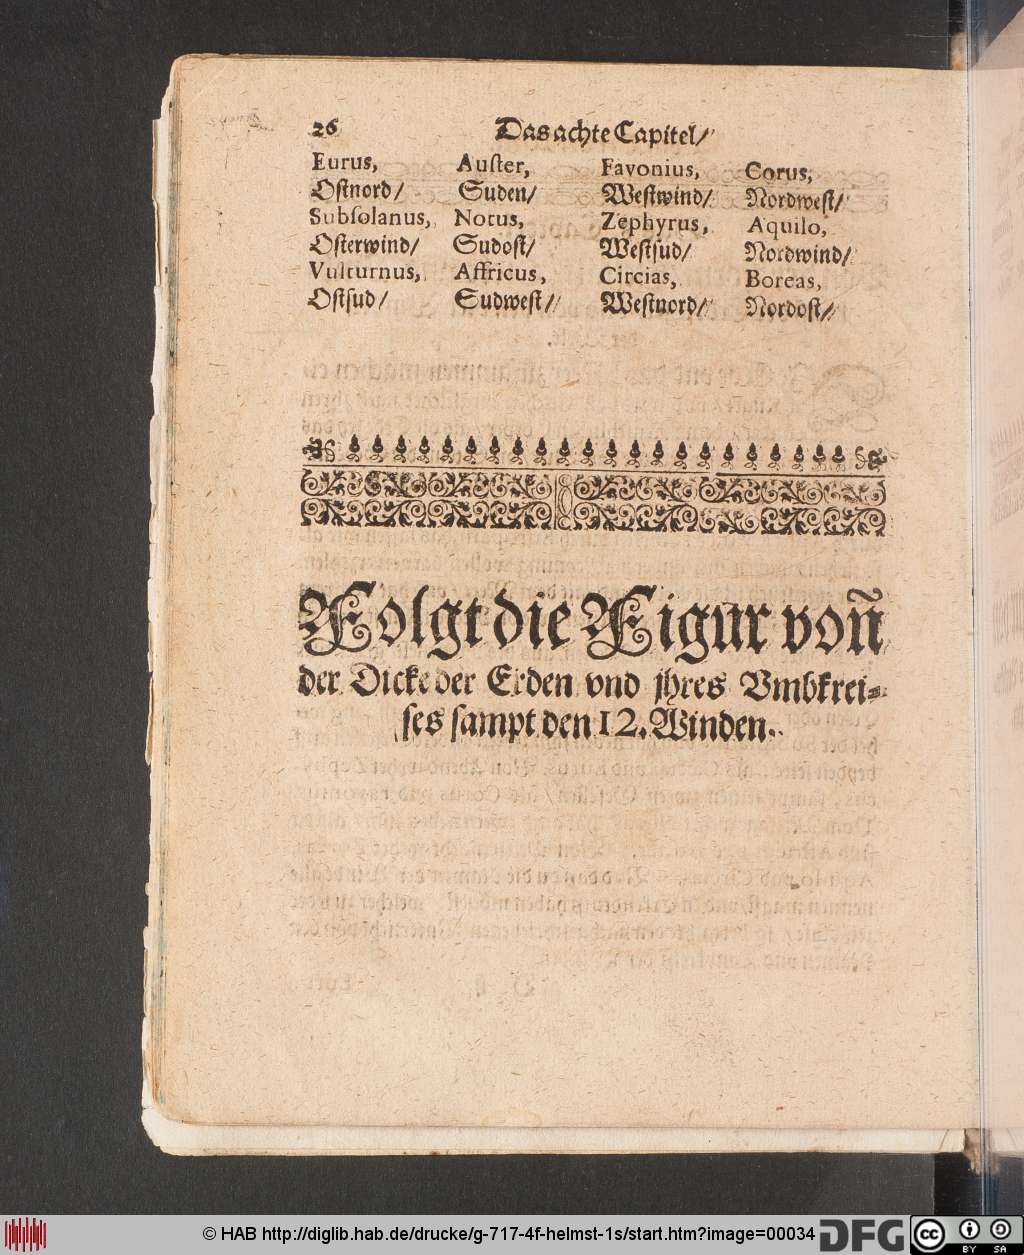 26 Das achte Capitel/
Eurus, Auſter, Favonius, Corus,
Oſtnord/ Suden/ Weſtwind/ Nordweſt/
Subſolanus, Notus, Zephyrus, Aquilo,
Oſterwind/ Sudoſt/ Weſtſud/ Nordwind/
Vulturnus, Affricus, Circias, Boreas,
Oſtſud/ Sudweſt// Weſtnord/ Nordoſt//
Folgt die Figur von̄
der Dicke der Erden vnd jhres Vmbkrei⸗
ſes ſampt den 12. Winden.
© HAB http://diglib.hab.de/drucke/g-717-4f-helmst-1s/start.htm?image=00034 DFG cc BY SA